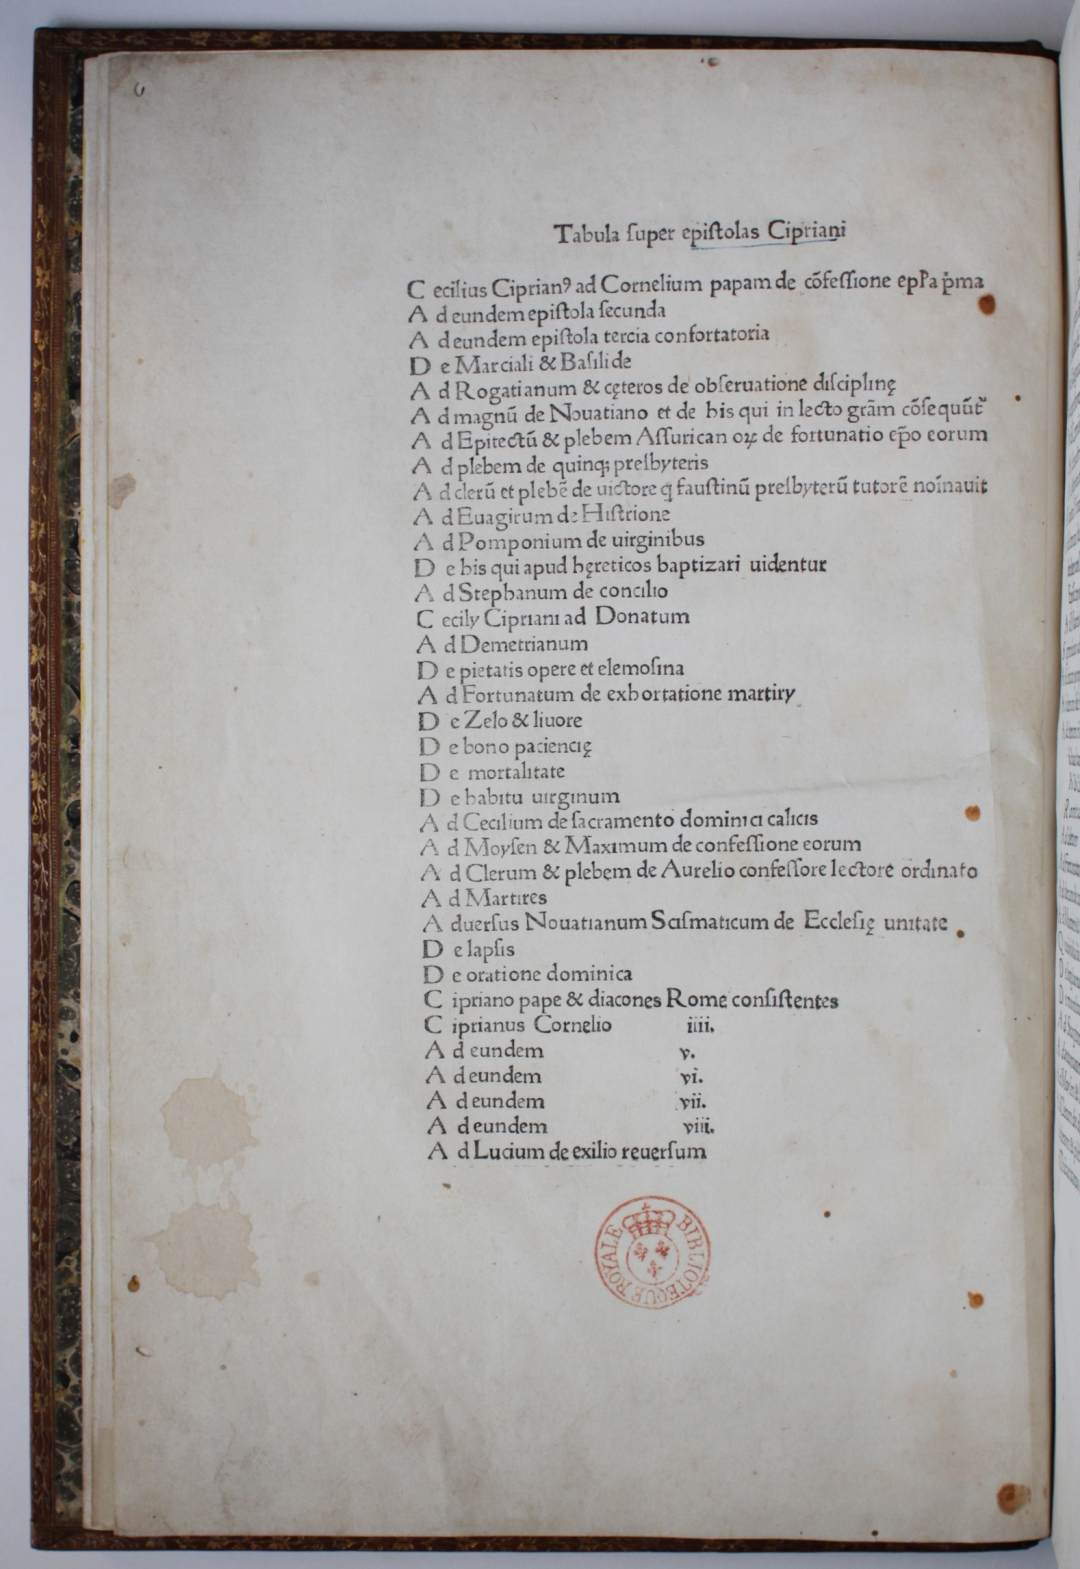 Tabula ſuper epiſtolas Cipriani
C ecilius Ciprianꝰ ad Cornelium papam de cōfeſſione epĺa p̄ma
A d eundem epiſtola ſecunda
A d eundem epiſtola tercia confortatoria
D e Marciali & Baſilide
A d Rogatianum & cęteros de obſeruatione diſciplinę
A d magnū de Nouatiano et de his qui in lecto grām cōſequūt᷑
A d Epitectū & plebem Aſſurican oꝝ de fortunatio ep̄o eorum
A d plebem de quinqꝫ preſbyteris
A d clerū et plebē de uictore q fauſtinū preſbyterū tutorē noīnauit
A d Euagirum de Hiſtrione
A d Pomponium de uirginibus
D e his qui apud hęreticos baptizari uidentur
A d Stephanum de concilio
C ecily Cipriani ad Donatum
A d Demetrianum
D e pietatis opere et elemoſina
A d Fortunatum de exhortatione martiry
D e Zelo & liuore
D e bono paciencię
D e mortalitate
D e habitu uirginum
A d Cecilium de ſacramento dominici calicis
A d Moyſen & Maximum de confeſſione eorum
A d Clerum & plebem de Aurelio confeſſore lectore ordinato
A d Martires
A duerſus Nouatianum Sciſmaticum de Eccleſię unitate
D e lapſis
D e oratione dominica
C ipriano pape & diacones Rome conſiſtentes
C iprianus Cornelio iiii.
A d eundem v.
A d eundem vi.
A d eundem vii.
A d eundem viii.
A d Lucium de exilio reuerſum
BIBLIOTEQUE ROYALE